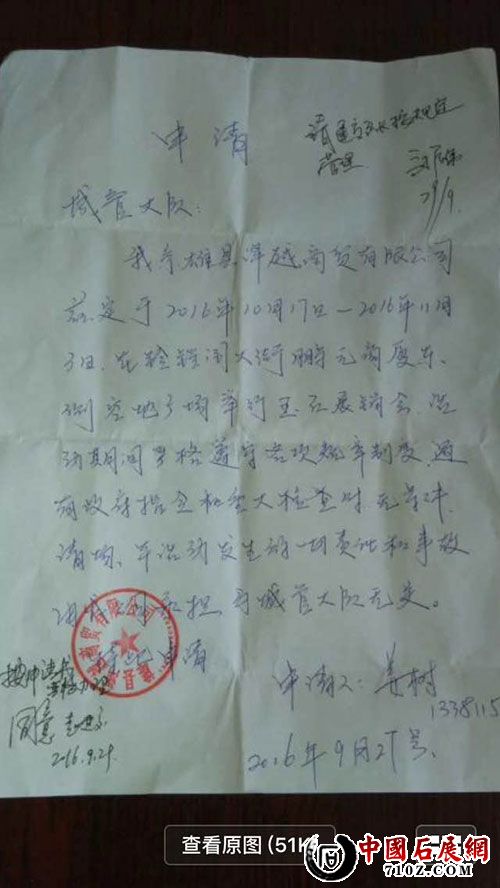 申请
城管大队:
我系雄县洋越商贸有限公司
兹定于2016年10月17日—2016年11月
3日.在铃铛阁大街鹏元商厦东
侧空地广场举行玉石展销会.活
动期间严格遵守各项规章制度.遇
有政府指令和重大检查时.无条件
清场.本活动发生的一切责任和事故
由我公司承担.与城管大队无关。
特此申请
申请人:姜树
1338115
2016年9月27号.
请
按规定
管理
29/9.
按申请
办理
同意
2016.9.29.
商贸有限公司
雄县
查看原图 (51K
中國石展網
7102.COM